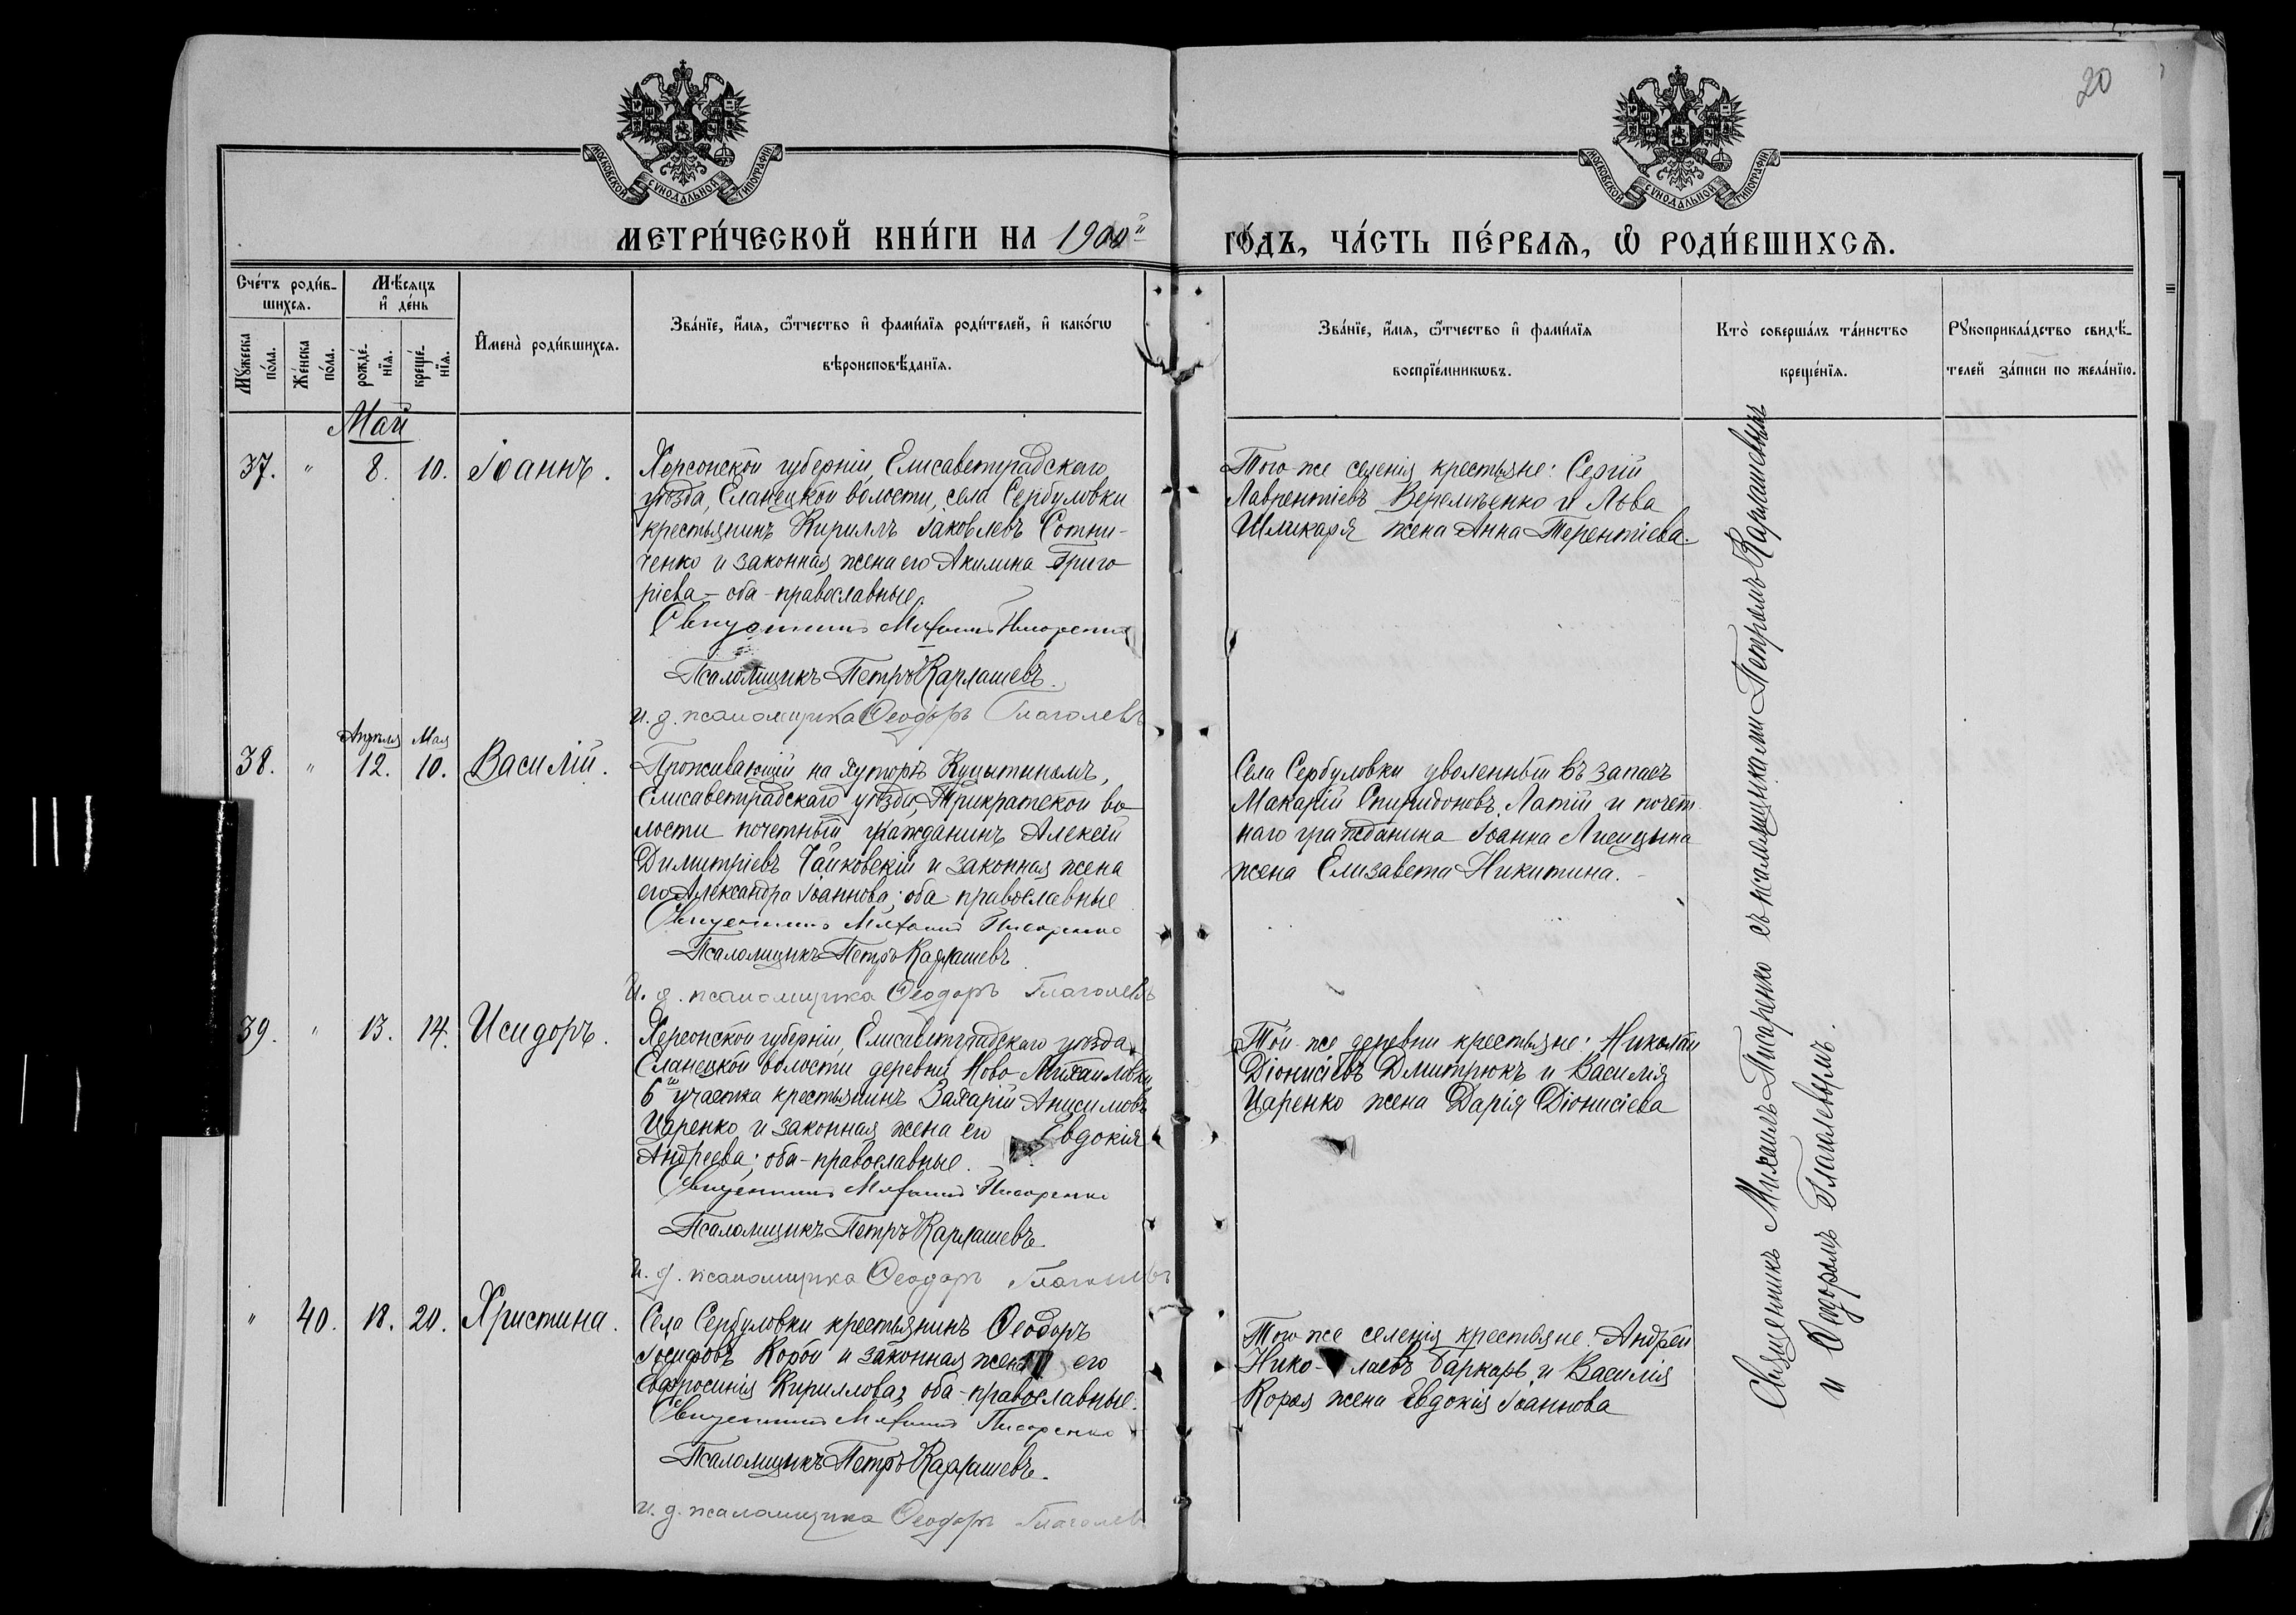 20
МОСКОВСКОЙ СѴНОДАЛЬНОЙ ТИПОГРАФІИ
МОСКОВСКОЙ СѴНОДАЛЬНОЙ ТИПОГРАФІИ
МЕТРИ́ЧЕСКОЙ КНИ́ГИ НА 1900й
ГО́ДЪ, ЧА́СТЬ ПЕ́РВАѦ, Ѡ РОДИ́ВШИХСѦ.
Сче́тъ роди́в-
шихсѧ.
Мѣ́сѧцъ
и де́нь
Мꙋ́жеска
по́ла.
Же́нска
по́ла.
рожде́-
нїѧ.
креще́-
нїѧ.
Имена̀ роди́вшихсѧ.
Зва́нїе, и́мѧ, ѻ́тчество и фами́лїѧ роди́телей, и како́гѡ
вѣроисповѣ́данїѧ.
Зва́нїе, и́мѧ, ѻ́тчество и фами́лїѧ
воспрїе́мникѡвъ.
Кто̀ соверша́лъ та́инство
креще́нїѧ.
Рꙋкоприкла́дство свидѣ́-
телей за́писи по жела́нїю.
Май
37. " 8. 10. Іоаннъ.
Херсонской губерніи, Елисаветградскаго
уѣзда, Еланецкой волости, села Сербуловки
крестьянинъ Кириллъ Іаковлевъ Сотни-
ченко и законная жена его Акилина Григо
рієва - оба - православные.
Священникъ Михаилъ Писаренко
Псаломщикъ Петръ Карлашевъ.
И. д. псаломщика Ѳеодоръ Глаголевъ
Того-же селенія крестьяне: Сергій
Лаврентіевъ Веремѣенко и Льва
Шликаря жена Анна Терентіева.
Апрѣля Мая
38. " 12. 10. Василій.
Проживающій на хуторѣ Купытиномъ,
Елисаветградскаго уѣзда, Трикратской во-
лости почетный гражданинъ Алексій
Димитріевъ Чайковскій и законная жена
его Александра Іоаннова; оба православные
Священникъ Михаилъ Писаренко
Псаломщикъ Петръ Карлашевъ
И. д. псаломщика Ѳеодоръ Глаголевъ
Села Сербуловки уволенный въ запасъ
Макарій Спиридоновъ Латій и почет-
наго гражданина Іоанна Лисицына
жена Елизавета Никитина.
39. " 13. 14. Исидоръ.
Херсонской губерніи, Елисаветградскаго уѣзда,
Еланецкой волости деревни Ново-Михайловки
6го участка крестьянинъ Захарій Анисимовъ
Царенко и законная жена его Евдокія
Андреева; оба - православные.
Священникъ Михаилъ Писаренко
Псаломщикъ Петръ Карлашевъ
И. д. псаломщика Ѳеодоръ Глаголевъ
Той-же деревни крестьяне: Николай
Діонисіевъ Дмитрюкъ и Василія
Царенко жена Дарія Діонисіева
" 40. 18. 20. Христина.
Села Сербуловки крестьянинъ Ѳеодоръ
Іосифовъ Корой и законная жена его
Евфросинія Кириллова, оба - православные.
Священникъ Михаилъ Писаренко
Псаломщикъ Петръ Карлашевъ.
И. д. псаломщика Ѳеодоръ Глаголев
Того-же селенія крестьяне: Андрей
Нико- лаевъ Баркарь и Василія
Короя жена Евдокія Іоаннова
Священникъ Михаилъ Писаренко съ псаломщиками Петромъ Карлашевымъ
и Ѳеодоромъ Глаголевымъ.